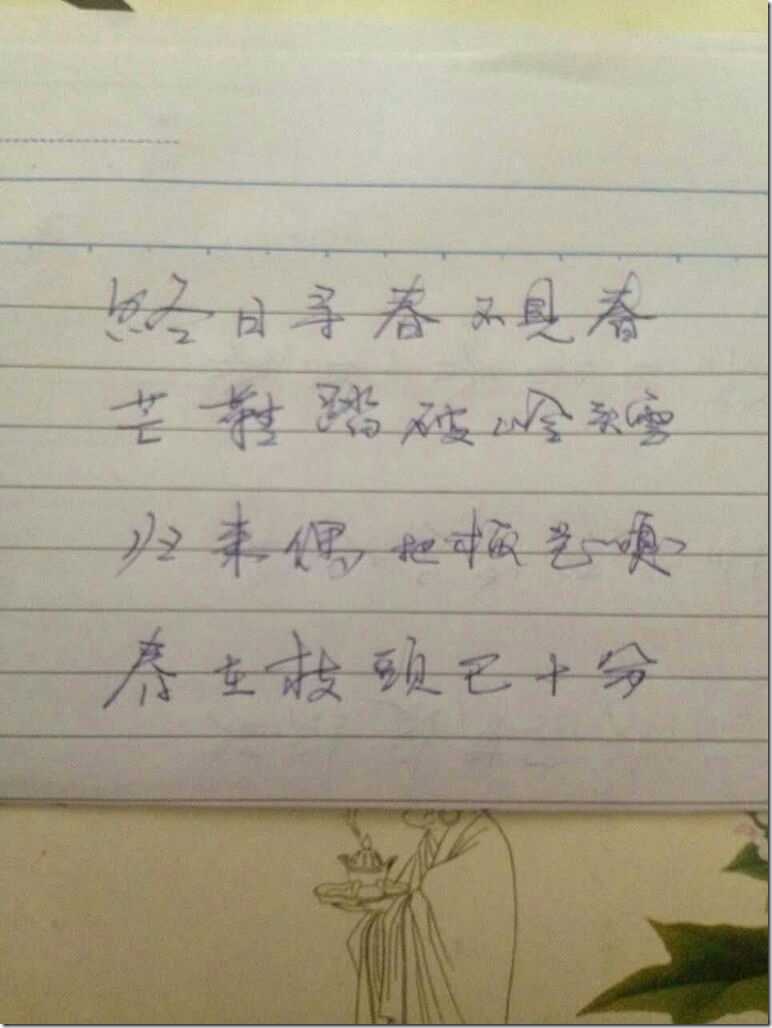 終日寻春不見春
芒鞋踏破岭头雪
归来偶把梅花嗅
春在枝頭已十分